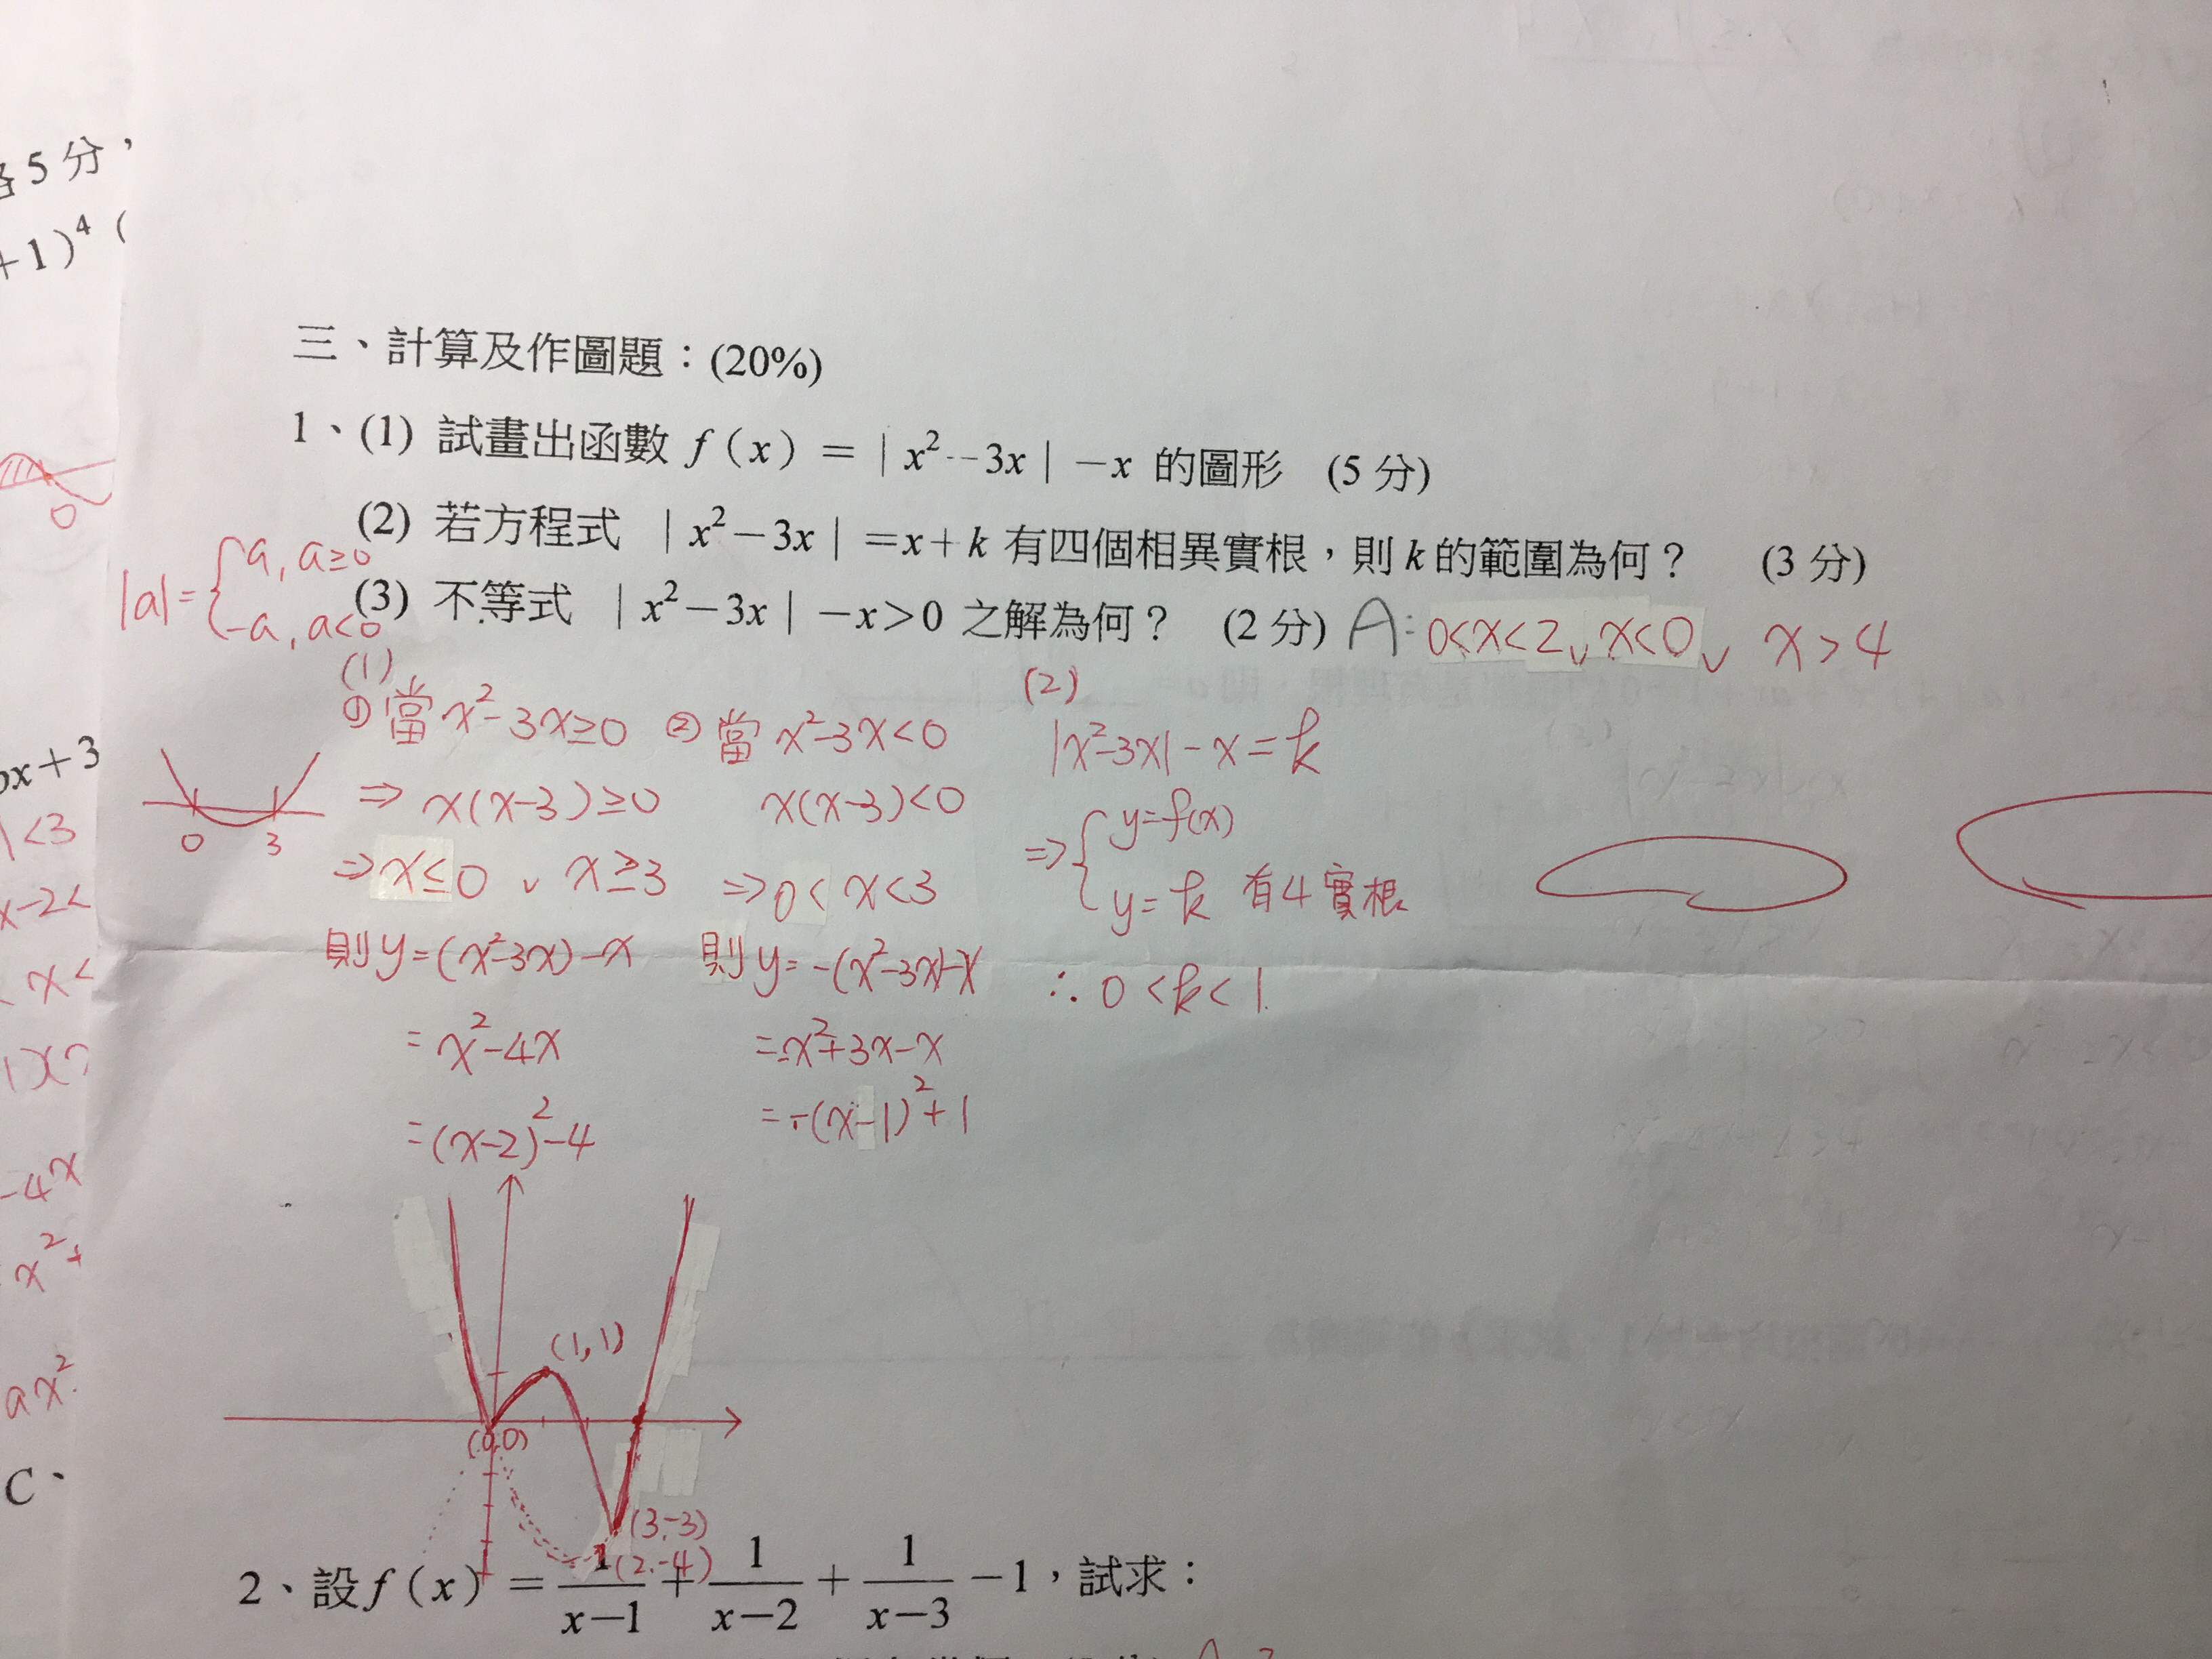 各5分，
+1)⁴ (
三、計算及作圖題：(20%)
1、(1) 試畫出函數 f(x) = |x²--3x|-x 的圖形 (5分)
(2) 若方程式 |x²-3x|=x+k 有四個相異實根，則k的範圍為何？ (3分)
(3) 不等式 |x²-3x|-x>0 之解為何？ (2分) A: 0<x<2 ∨ x<0 ∨ x>4
|a|= { a, a≥0
-a, a<0
0
(1)
① 當 x²-3x≥0
⇒ x(x-3)≥0
0 3
⇒ x≤0 ∨ x≥3
則 y=(x²-3x)-x
= x²-4x
=(x-2)²-4
② 當 x²-3x<0
x(x-3)<0
⇒ 0<x<3
則 y=-(x²-3x)-x
=-x²+3x-x
=-(x-1)²+1
(2)
|x²-3x|-x=k
⇒ { y=f(x)
y=k 有4實根
∴ 0<k<1
(1,1)
(0,0)
(3,-3)
(2,-4)
x+3
<3
x-2<
x<
-4x
x²+
ax²
C、
2、設f(x) = 1/(x-1) + 1/(x-2) + 1/(x-3) -1，試求：